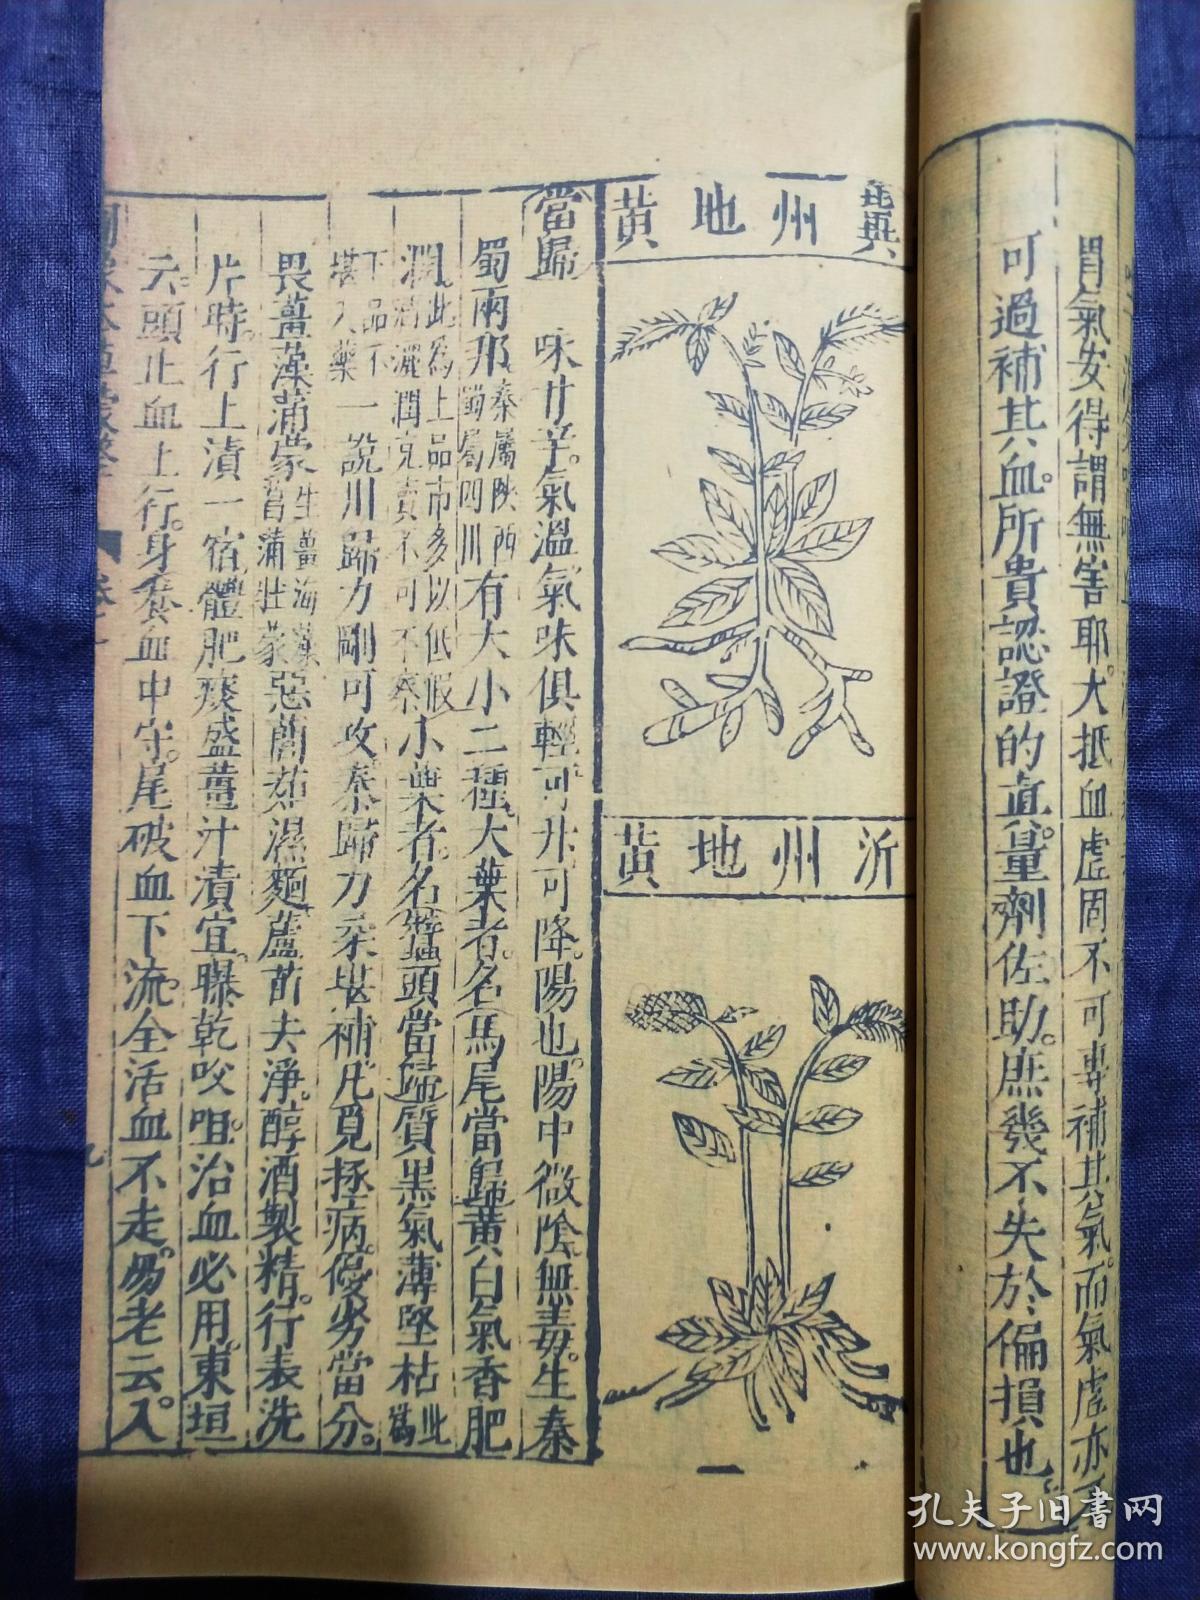 胃氣安得謂無害耶。大抵血虛固不可專補其氣。而氣虛亦不
可過補其血。所貴認證的直。量劑佐助。庶幾不失於偏損也。
州地黃
沂州地黃
當歸 味甘辛。氣溫。氣味俱輕可升可降。陽也。陽中微陰。無毒。生秦
蜀兩邦。秦屬陝西蜀屬四川有大小二種。大葉者。名馬尾當歸黃白氣香肥
潤。此為上品市多以低假酒灑潤克賣不可不察小葉者。名蠶頭當歸質黑氣薄堅枯此為
下品不堪入藥一說川歸力剛可攻秦歸力柔堪補。凡覓拯病。優劣當分。
畏薑藻蒲蒙生薑海藻菖蒲牡蒙惡䕡茹濕麵蘆苗去淨。醇酒製精。行表洗
片時。行上漬一宿體肥痰盛薑汁漬宜。曝乾咬咀。治血必用。東垣
云。頭止血上行。身養血中守。尾破血下流。全活血不走。易老云。入
卷之
九
孔夫子旧书网
www.kongfz.com